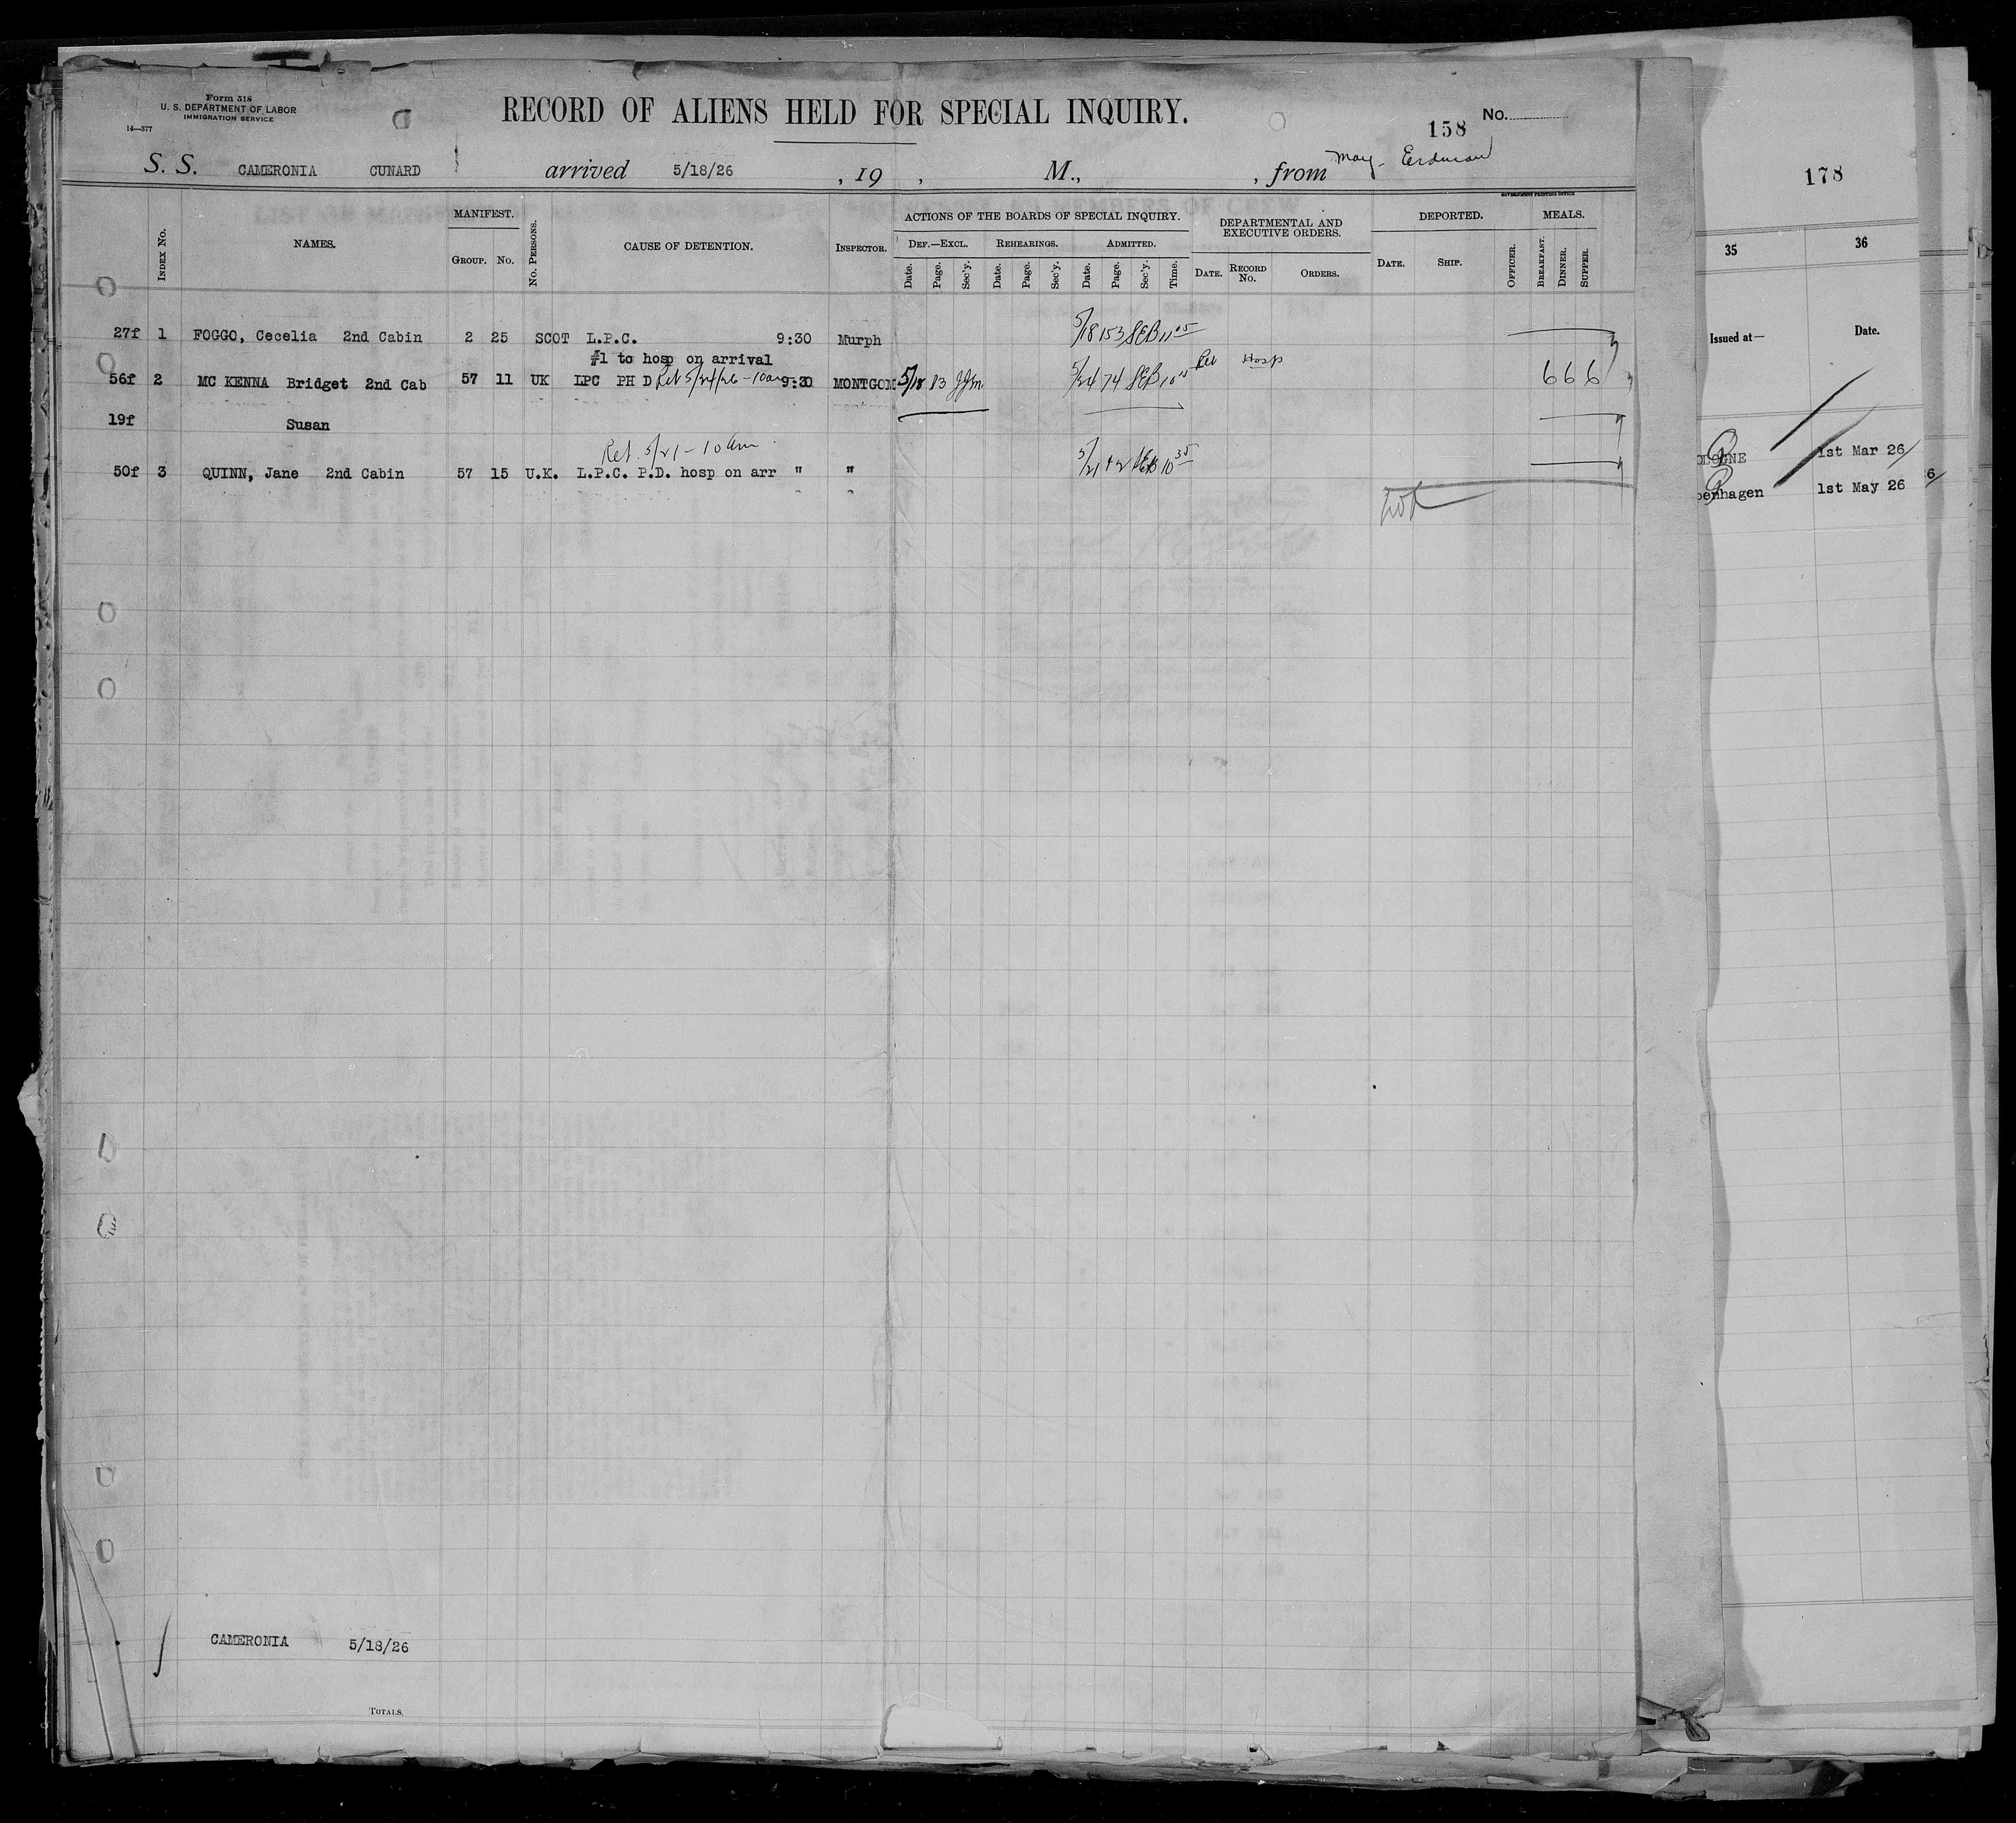 Form 518
U. S. DEPARTMENT OF LABOR
IMMIGRATION SERVICE
14—377
RECORD OF ALIENS HELD FOR SPECIAL INQUIRY.
No.
158
S. S. CAMERONIA CUNARD arrived 5/18/26 , 19 , M., , from May - Erdman
GOVERNMENT PRINTING OFFICE
INDEX No. NAMES. MANIFEST. GROUP. No. No. PERSONS. CAUSE OF DETENTION. INSPECTOR. ACTIONS OF THE BOARDS OF SPECIAL INQUIRY. DEF.—EXCL. REHEARINGS. ADMITTED. DEPARTMENTAL AND EXECUTIVE ORDERS. DEPORTED. MEALS.
Date. Page. Sec'y. Date. Page. Sec'y. Date. Page. Sec'y. Time. DATE. RECORD No. ORDERS. DATE. SHIP. OFFICER. BREAKFAST. DINNER. SUPPER.
27f 1 FOGGO, Cecelia 2nd Cabin 2 25 SCOT L.P.C. 9:30 Murph 5/18 153 SEB 11 05
#1 to hosp on arrival
56f 2 MC KENNA Bridget 2nd Cab 57 11 UK LPC PH D Ret 5/24/26 - 10am 9:30 MONTGOM 5/18 83 JJM. 5/24 74 SEB Rel Hosp 6 6 6
19f Susan
Ret. 5/21 - 10 am.
50f 3 QUINN, Jane 2nd Cabin 57 15 U.K. L.P.C. P.D. hosp on arr " " 5/21 SEB 10 35
CAMERONIA 5/18/26
TOTALS.
178
35 36
Issued at— Date.
OLOGNE 1st Mar 26
penhagen 1st May 26
6